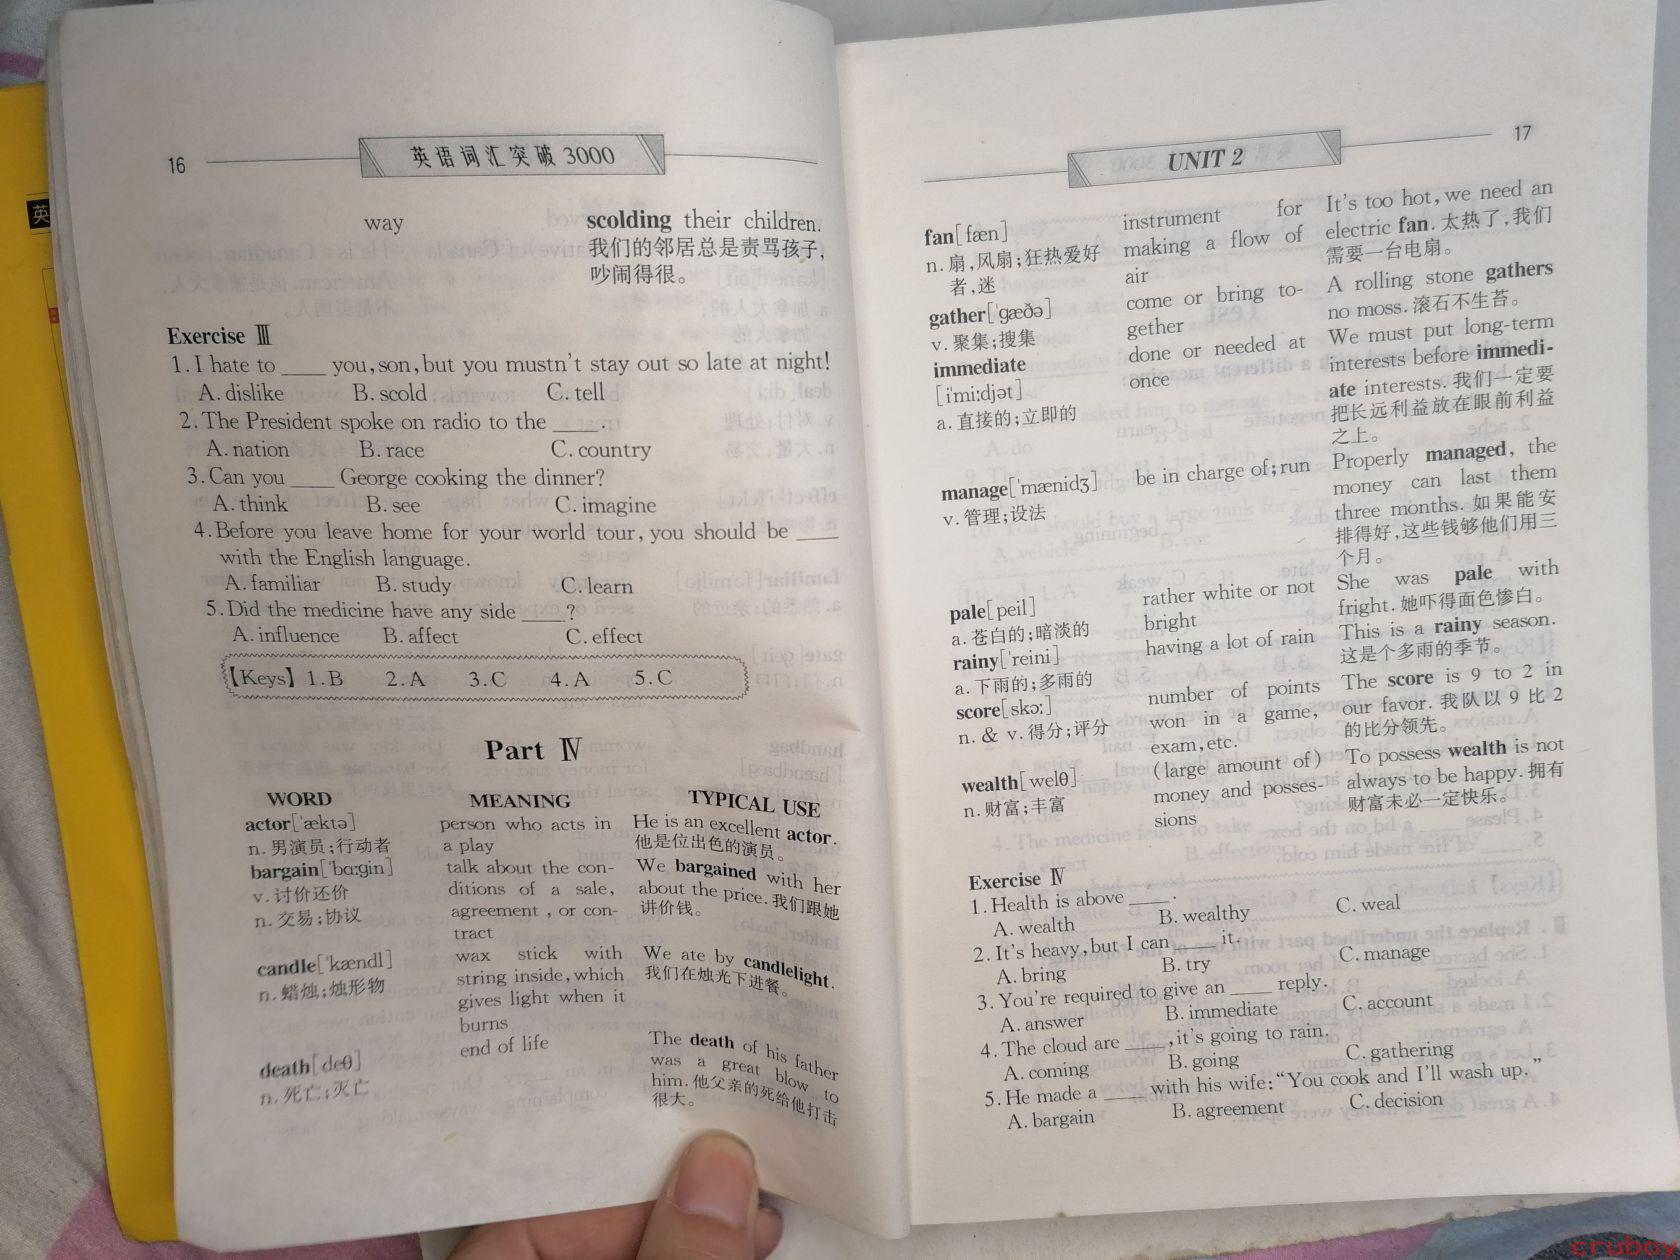 16
英语词汇突破 3000
way
scolding their children.
我们的邻居总是责骂孩子,
吵闹得很。
Exercise Ⅲ
1. I hate to ____ you, son, but you mustn't stay out so late at night!
A. dislike B. scold C. tell
2. The President spoke on radio to the ____.
A. nation B. race C. country
3. Can you ____ George cooking the dinner?
A. think B. see C. imagine
4. Before you leave home for your world tour, you should be ____
with the English language.
A. familiar B. study C. learn
5. Did the medicine have any side ____?
A. influence B. affect C. effect
【Keys】 1. B 2. A 3. C 4. A 5. C
Part Ⅳ
WORD MEANING TYPICAL USE
actor['æktə]
n. 男演员;行动者
person who acts in
a play
He is an excellent actor.
他是位出色的演员。
bargain['bɑ:gin]
v. 讨价还价
n. 交易;协议
talk about the con-
ditions of a sale,
agreement , or con-
tract
We bargained with her
about the price. 我们跟她
讲价钱。
candle['kændl]
n. 蜡烛;烛形物
wax stick with
string inside, which
gives light when it
burns
We ate by candlelight.
我们在烛光下进餐。
death[deθ]
n. 死亡;灭亡
end of life
The death of his father
was a great blow to
him. 他父亲的死给他打击
很大。
UNIT 2
17
fan[fæn]
n. 扇,风扇;狂热爱好
者,迷
instrument for
making a flow of
air
It's too hot, we need an
electric fan. 太热了,我们
需要一台电扇。
gather['gæðə]
v. 聚集;搜集
come or bring to-
gether
A rolling stone gathers
no moss. 滚石不生苔。
immediate
[i'mi:djət]
a. 直接的;立即的
done or needed at
once
We must put long-term
interests before immedi-
ate interests. 我们一定要
把长远利益放在眼前利益
之上。
manage['mænidʒ]
v. 管理;设法
be in charge of; run
Properly managed, the
money can last them
three months. 如果能安
排得好,这些钱够他们用三
个月。
pale[peil]
a. 苍白的;暗淡的
rather white or not
bright
She was pale with
fright. 她吓得面色惨白。
rainy['reini]
a. 下雨的;多雨的
having a lot of rain
This is a rainy season.
这是个多雨的季节。
score[skɔ:]
n. & v. 得分;评分
number of points
won in a game,
exam, etc.
The score is 9 to 2 in
our favor. 我队以 9 比 2
的比分领先。
wealth[welθ]
n. 财富;丰富
(large amount of)
money and posses-
sions
To possess wealth is not
always to be happy. 拥有
财富未必一定快乐。
Exercise Ⅳ
1. Health is above ____.
A. wealth B. wealthy C. weal
2. It's heavy, but I can ____ it.
A. bring B. try C. manage
3. You're required to give an ____ reply.
A. answer B. immediate C. account
4. The cloud are ____, it's going to rain.
A. coming B. going C. gathering
5. He made a ____ with his wife: "You cook and I'll wash up. "
A. bargain B. agreement C. decision
英
cruboy